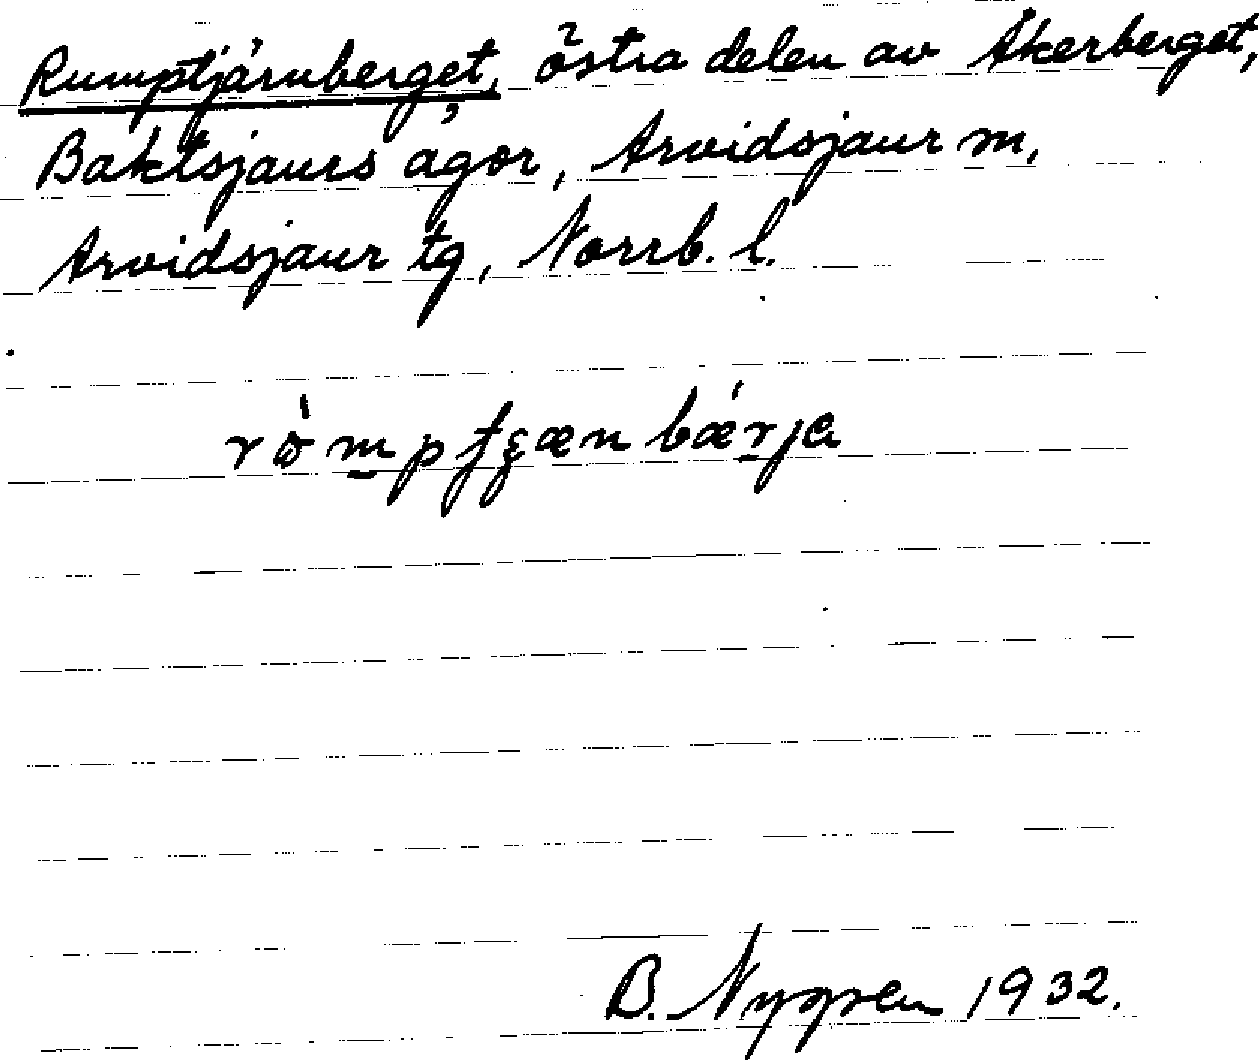 Rumptjärnberget, östra delen av Åkerberget,
Baktsjaurs ägor, Arvidsjaur m,
Arvidsjaur tg, Norrb. l.
B. Nygren 1932.